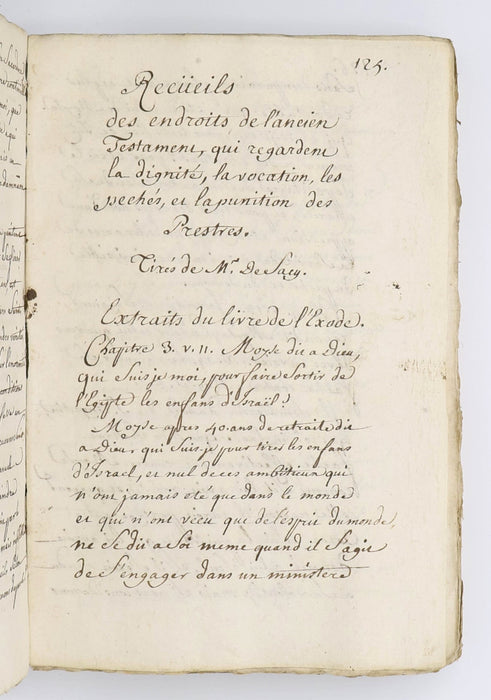 125.
Recüeils
des endroits de l'ancien
Testament, qui regardent
la dignité, la vocation, les
pechés, et la punition des
Prestres.
Tirés de Mr. De Sacy.
Extraits du livre de l'Exode.
Chapitre 3. v. 11. Moyse dit a Dieu,
qui suis je moi, pour faire sortir de
l'Egipte les enfans d'Israël?
Moyse apres 40. ans de retraite dit
a Dieu qui suis je pour tirer les enfans
d'Israel, et nul de ces ambitieux qui
n'ont jamais eté que dans le monde
et qui n'ont vecu que de l'esprit du monde,
ne se dit a soi meme quand il s'agit
de s'engager dans un ministere